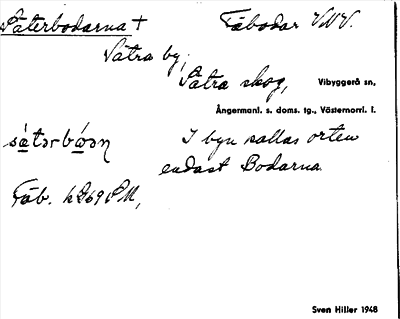 Säterbodarna † Fäbodar VNV.
Sätra by,
Sätra skog, Vibyggerå sn,
Ångermanl. s. doms. tg., Västernorrl. l.
I byn kallas orten
endast Bodarna.
Fäb.
Sven Hiller 1948